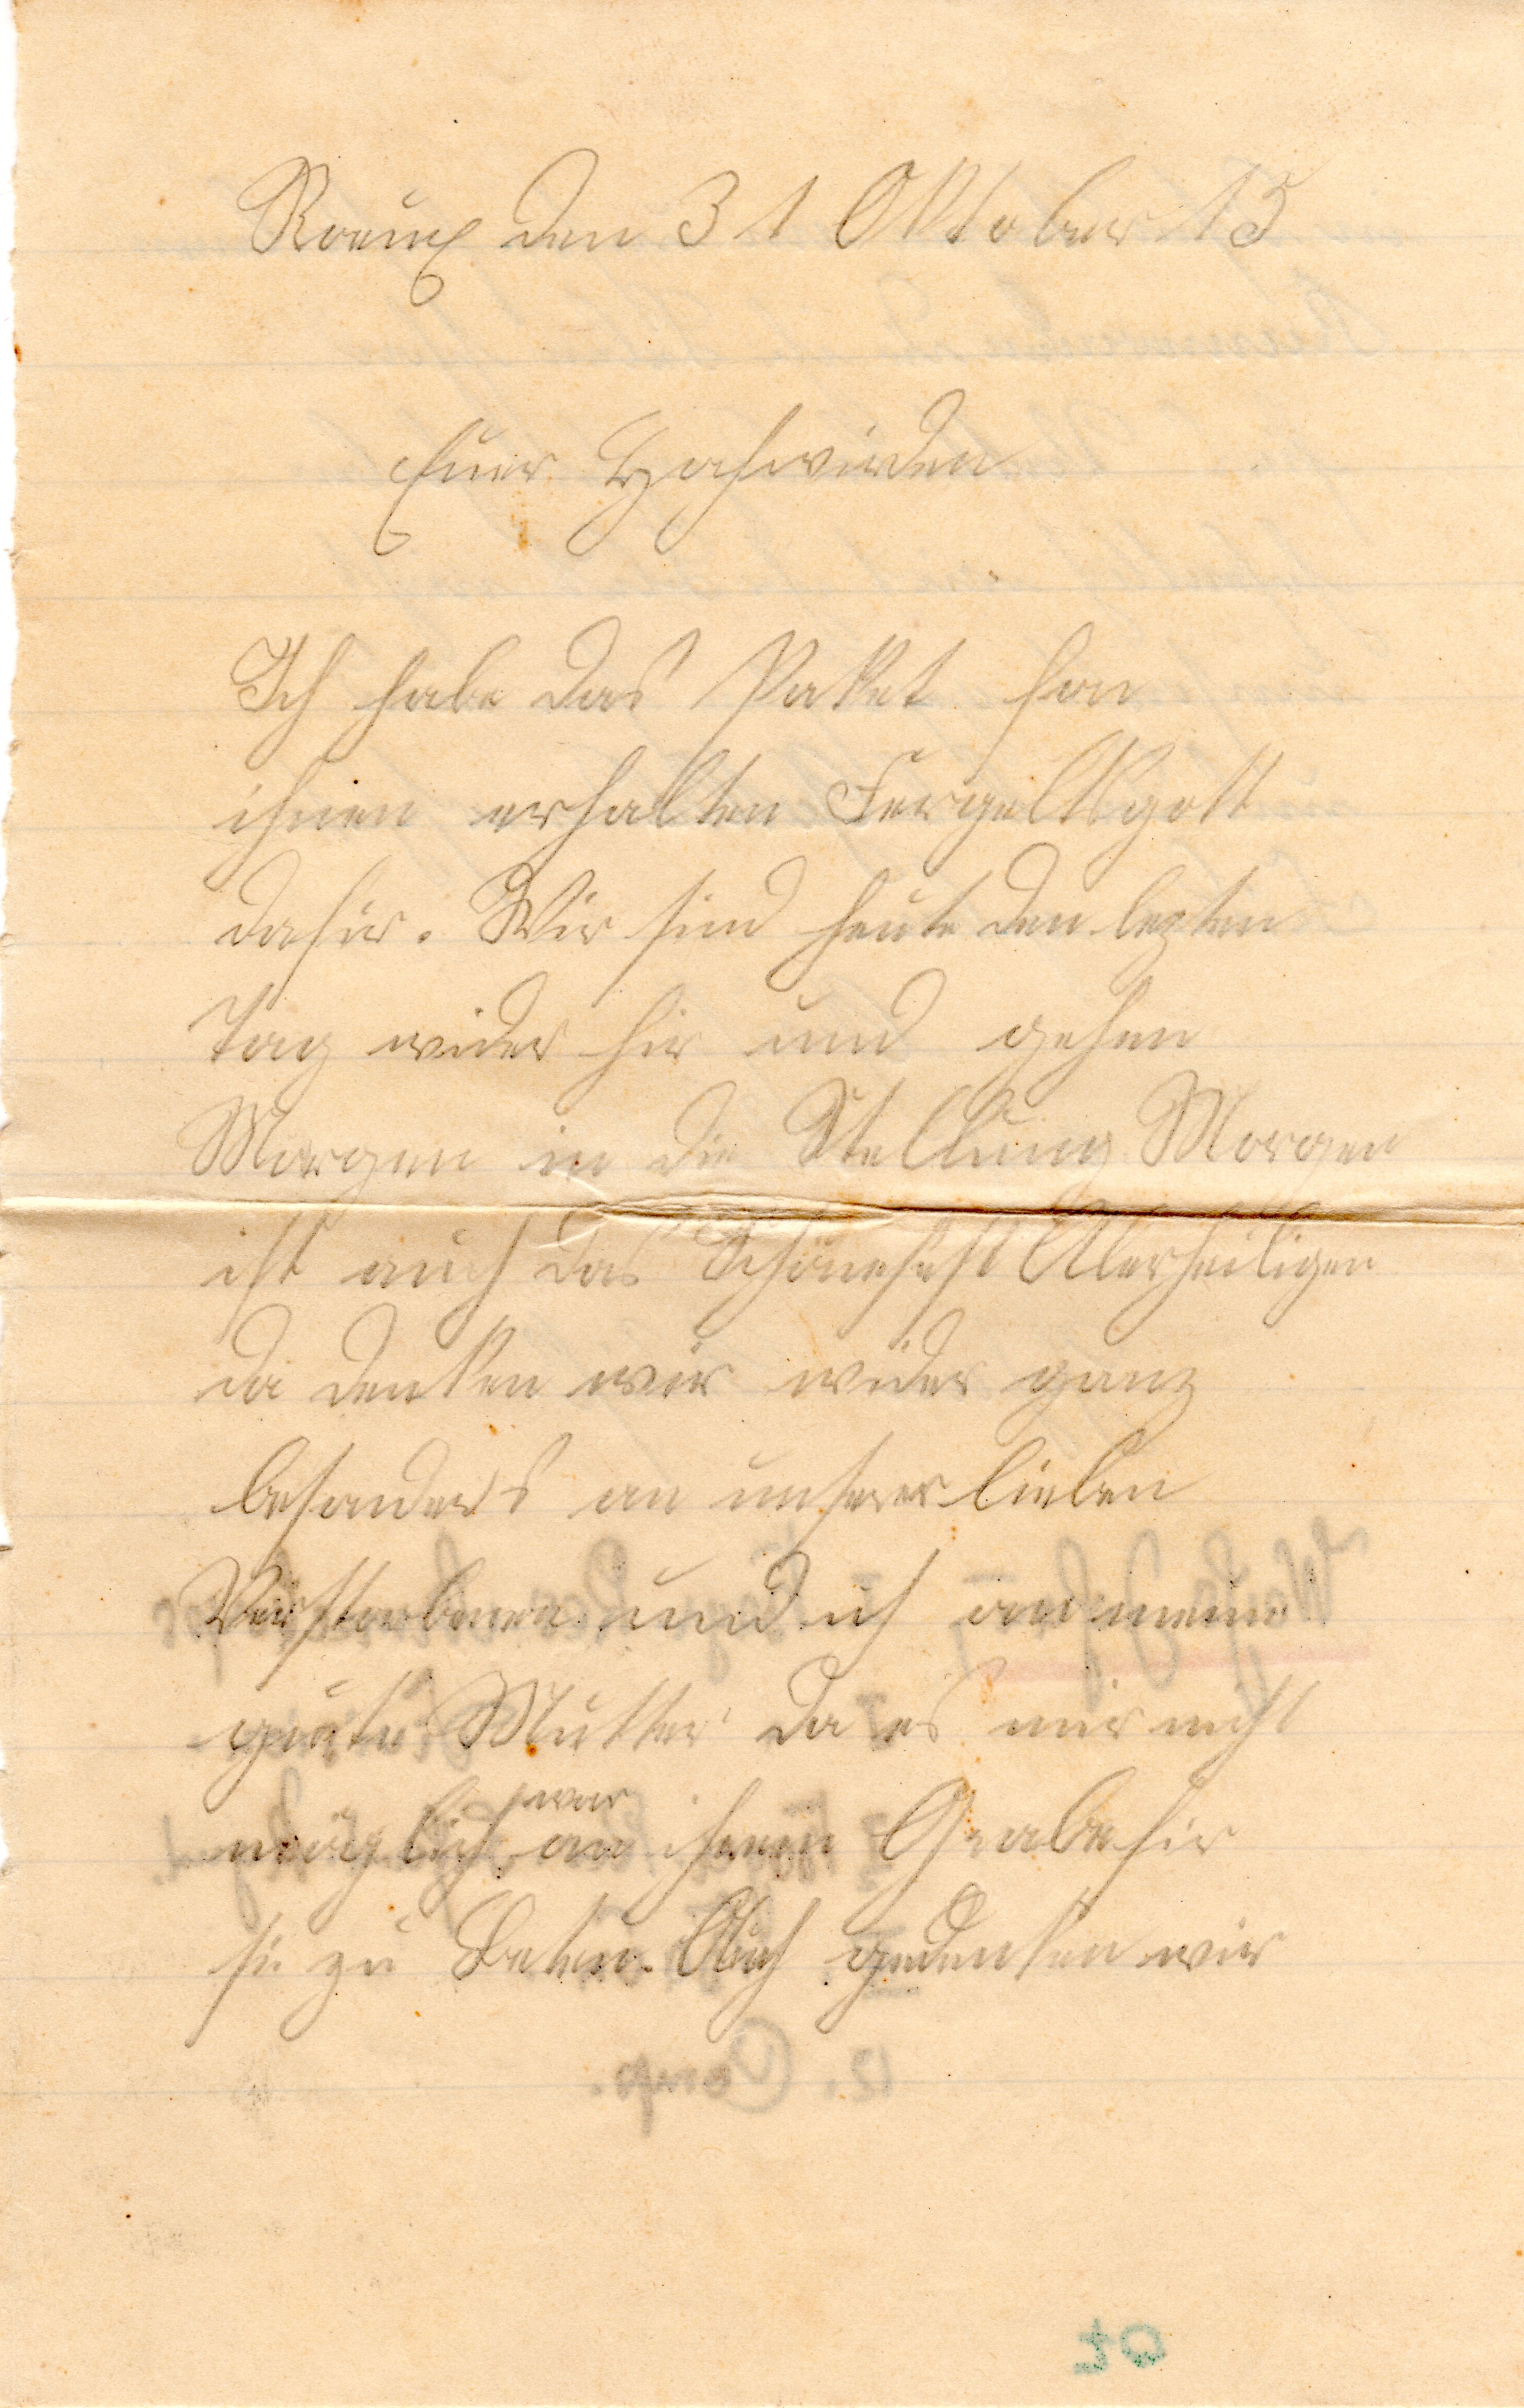 Roeux den 31 Oktober 15
Euer Hochwirden
Ich habe das Paket fon
ihnen erhalten Fergeltsgott
dafür. Wir sind heute den lezten
Tag wider hir und gehen
Morgen in die Stellung Morgen
ist auch das Schönefest Allerheiligen
da denken wir wider ganz
besonders an unserer lieben
Verstorbenen und ich an meine
gute Mutter da es mir nicht
möglich war an ihrem Grabe fir
sie zu Beten. Auch gedenken wir